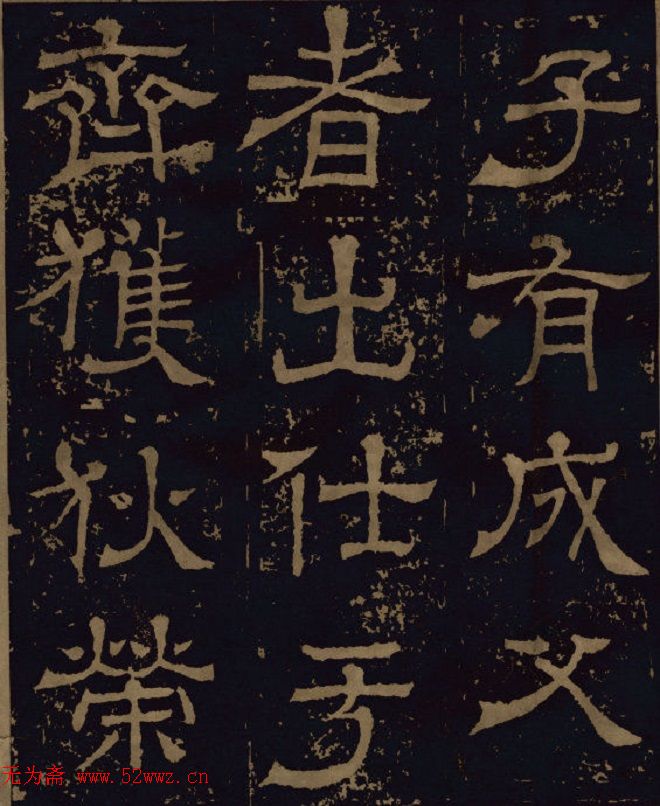 子有成父
者出仕于
齊獲狄榮
无为斋 www.52wwz.cn